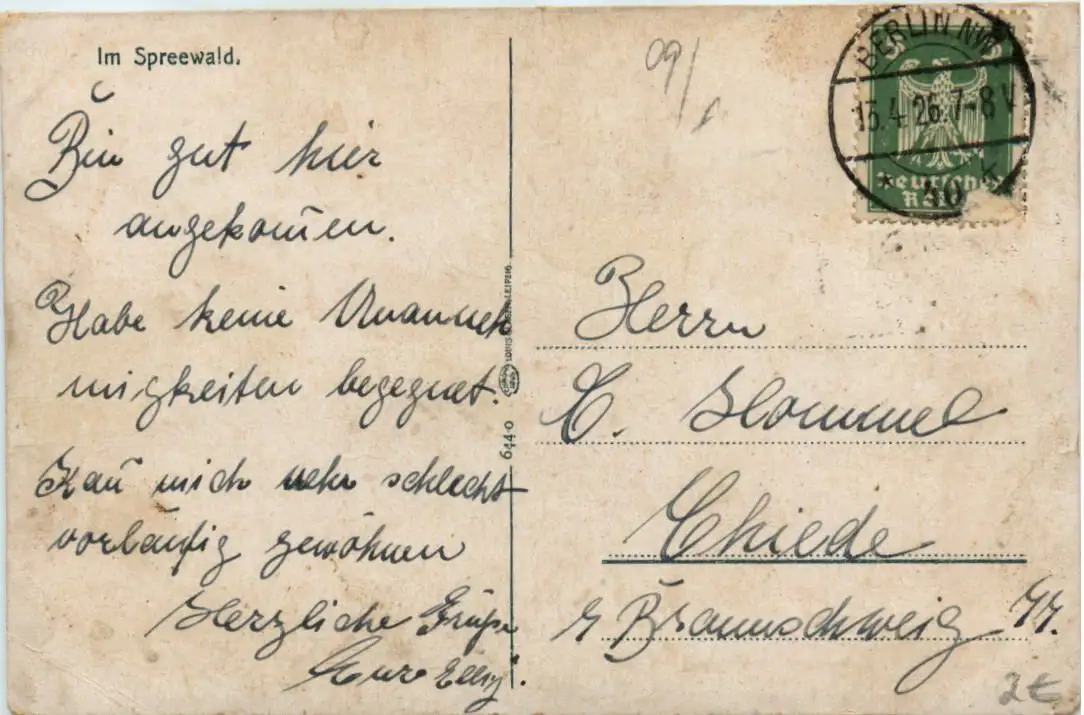 Im Spreewald.
Bin gut hier
angekom̄en.
Habe keine Unanneh
migkeiten begegnet.
Kan̄ mich sehr schlecht
vorläufig gewöhnen
Herzliche Grüße
Eure Elly.
644.0
09/
BERLIN NW
13.4.26.7-8V
* 40 k
Deutsches
Reich
Herrn
C. Hommel
Thiede
Braunschweig
2€